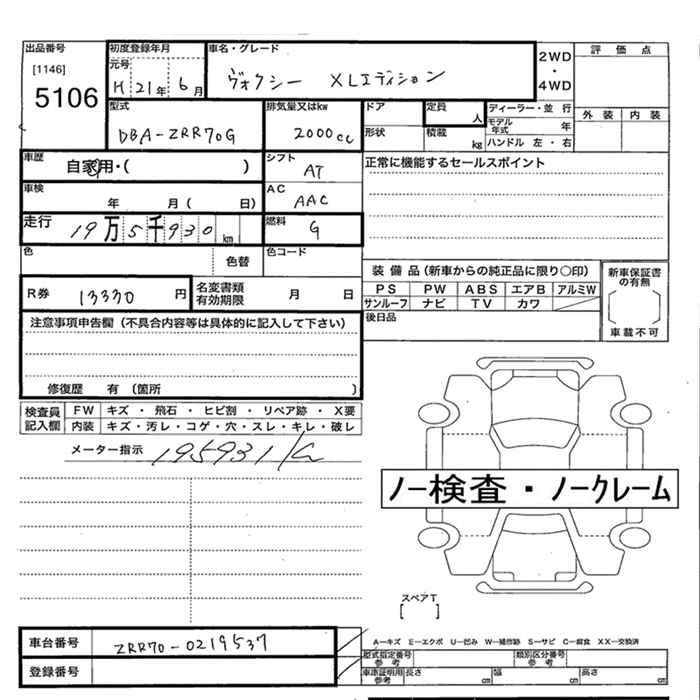 出品番号 初度登録年月 車名・グレード
[1146] 5106
元号 H 21 年 6 月
ヴォクシー XLエディション
2WD ・ 4WD
評価点
外装 内装
型式 DBA-ZRR70G
排気量又はkw 2000cc
ドア 定員 人
形状 積載 kg
ディーラー・並行
モデル年式 年
ハンドル 左・右
車歴 自家用・( )
シフト AT
正常に機能するセールスポイント
車検 年 月( 日)
AC AAC
走行 19万5千930km
燃料 G
色 色替 色コード
装備品(新車からの純正品に限り○印)
新車保証書の有無
PS PW ABS エアB アルミW
サンルーフ ナビ TV カワ
車載不可
R券 13330 円
名変書類有効期限 月 日
後日品
注意事項申告欄(不具合内容等は具体的に記入して下さい)
修復歴 有 (箇所 )
検査員記入欄
FW キズ・飛石・ヒビ割・リペア跡・X要
内装 キズ・汚レ・コゲ・穴・スレ・キレ・破レ
メーター指示 195931
ノー検査・ノークレーム
スペアT
[ ]
車台番号 ZRR70-0219537
登録番号
A-キズ E-エクボ U-凹み W-補修跡 S-サビ C-腐食 XX-交換済
型式指定番号 参考 類別区分番号 参考
車庫証明用 参考 長さ cm 幅 cm 高さ cm